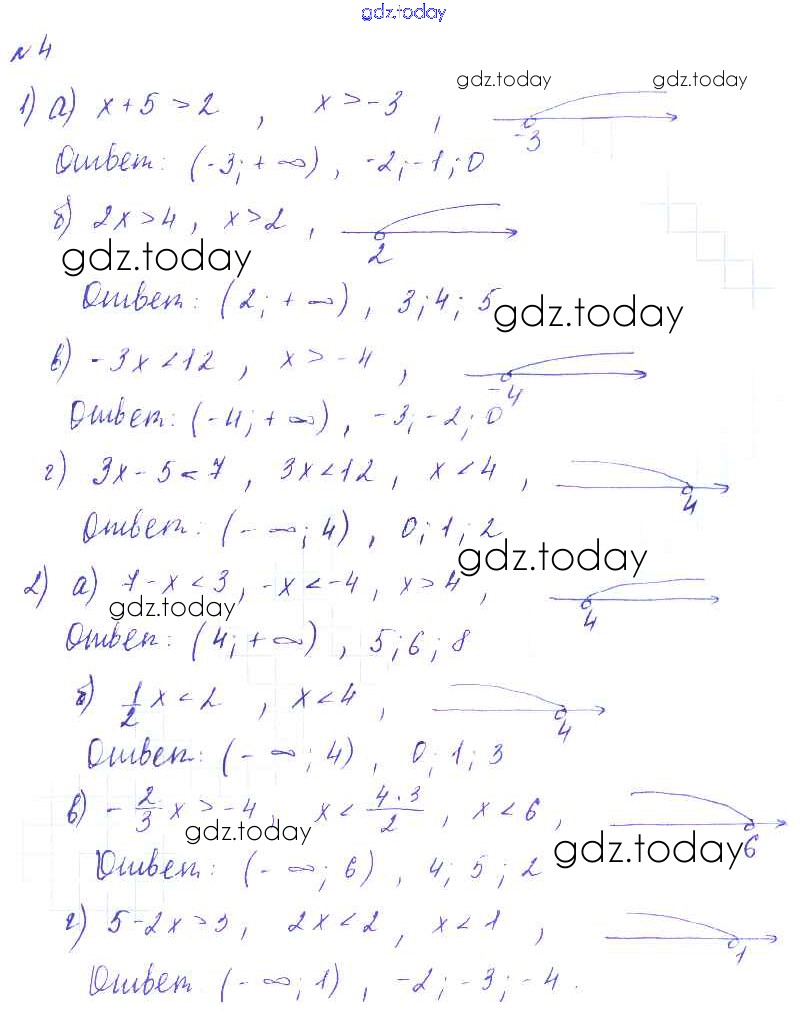 gdz.today
№4
gdz.today gdz.today
1) а) x+5>2 , x>-3 , -3
Ответ: (-3;+∞), -2;-1;0
б) 2x>4, x>2 , 2
gdz.today
Ответ: (2;+∞), 3;4;5
gdz.today
в) -3x<12 , x>-4 , -4
Ответ: (-4;+∞), -3;-2;0
г) 3x-5<7 , 3x<12 , x<4 , 4
Ответ: (-∞;4), 0;1;2
gdz.today
2) а) 7-x<3, -x<-4, x>4 , 4
gdz.today
Ответ: (4;+∞), 5;6;8
б) 1/2 x<2 , x<4 , 4
Ответ: (-∞;4), 0;1;3
в) -2/3 x>-4, x< 4·3/2 , x<6 , 6
gdz.today gdz.today
Ответ: (-∞;6), 4;5;2
г) 5-2x>3, 2x<2 , x<1 , 1
Ответ (-∞;1), -2;-3;-4.